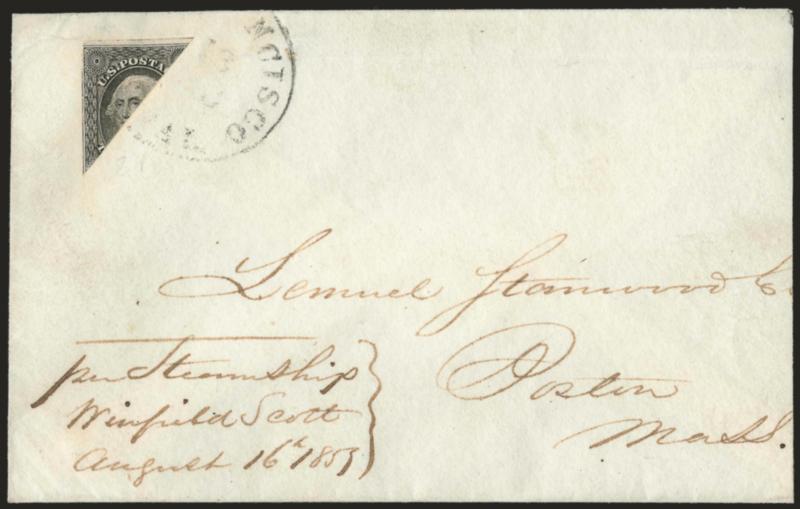 U.S. POSTA
NCISCO
CAL
Lemuel Stanwood E
per Steamship
Winfield Scott
August 16th 1853
Boston
Mass.